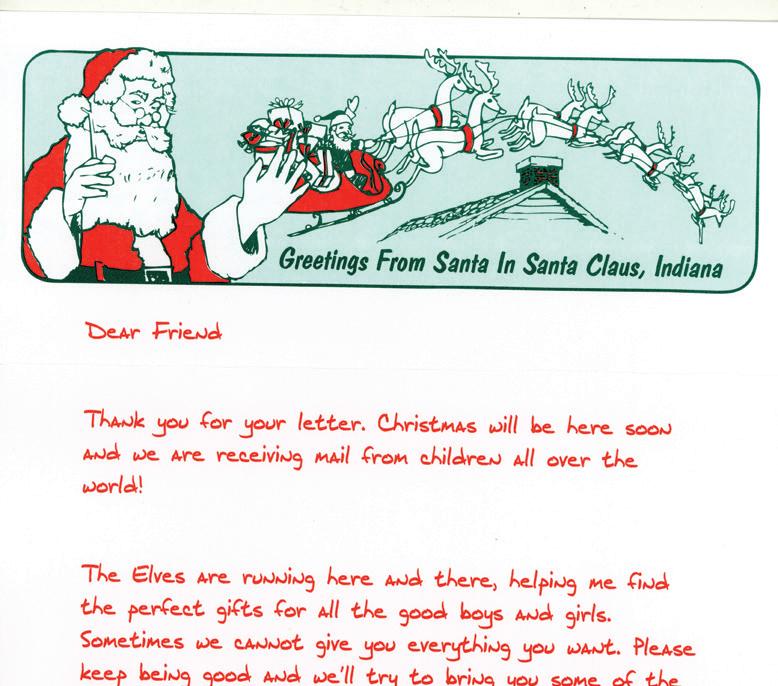 Greetings From Santa In Santa Claus, Indiana
Dear Friend
Thank you for your letter. Christmas will be here soon
and we are receiving mail from children all over the
world!
The Elves are running here and there, helping me find
the perfect gifts for all the good boys and girls.
Sometimes we cannot give you everything you want. Please
keep being good and we'll try to bring you some of the